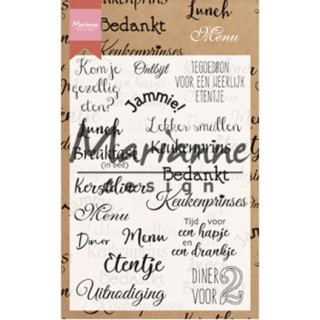 Lunch
Marianne
DESIGN
Bedankt
Menu
Keukenprinses
Kom je
gezellig
eten?
Ontbijt
TEGOEDBON
VOOR EEN HEERLIJK
ETENTJE
Jammie!
Lunch
Lekker smullen
Breakfast
(in bed)
Keukenprins
Marianne
design
Bedankt
Kerstdiner
Keukenprinses
Menu
Tijd voor
een hapje
en
een drankje
Diner
Menu
Etentje
DINER
VOOR 2
Uitnodiging